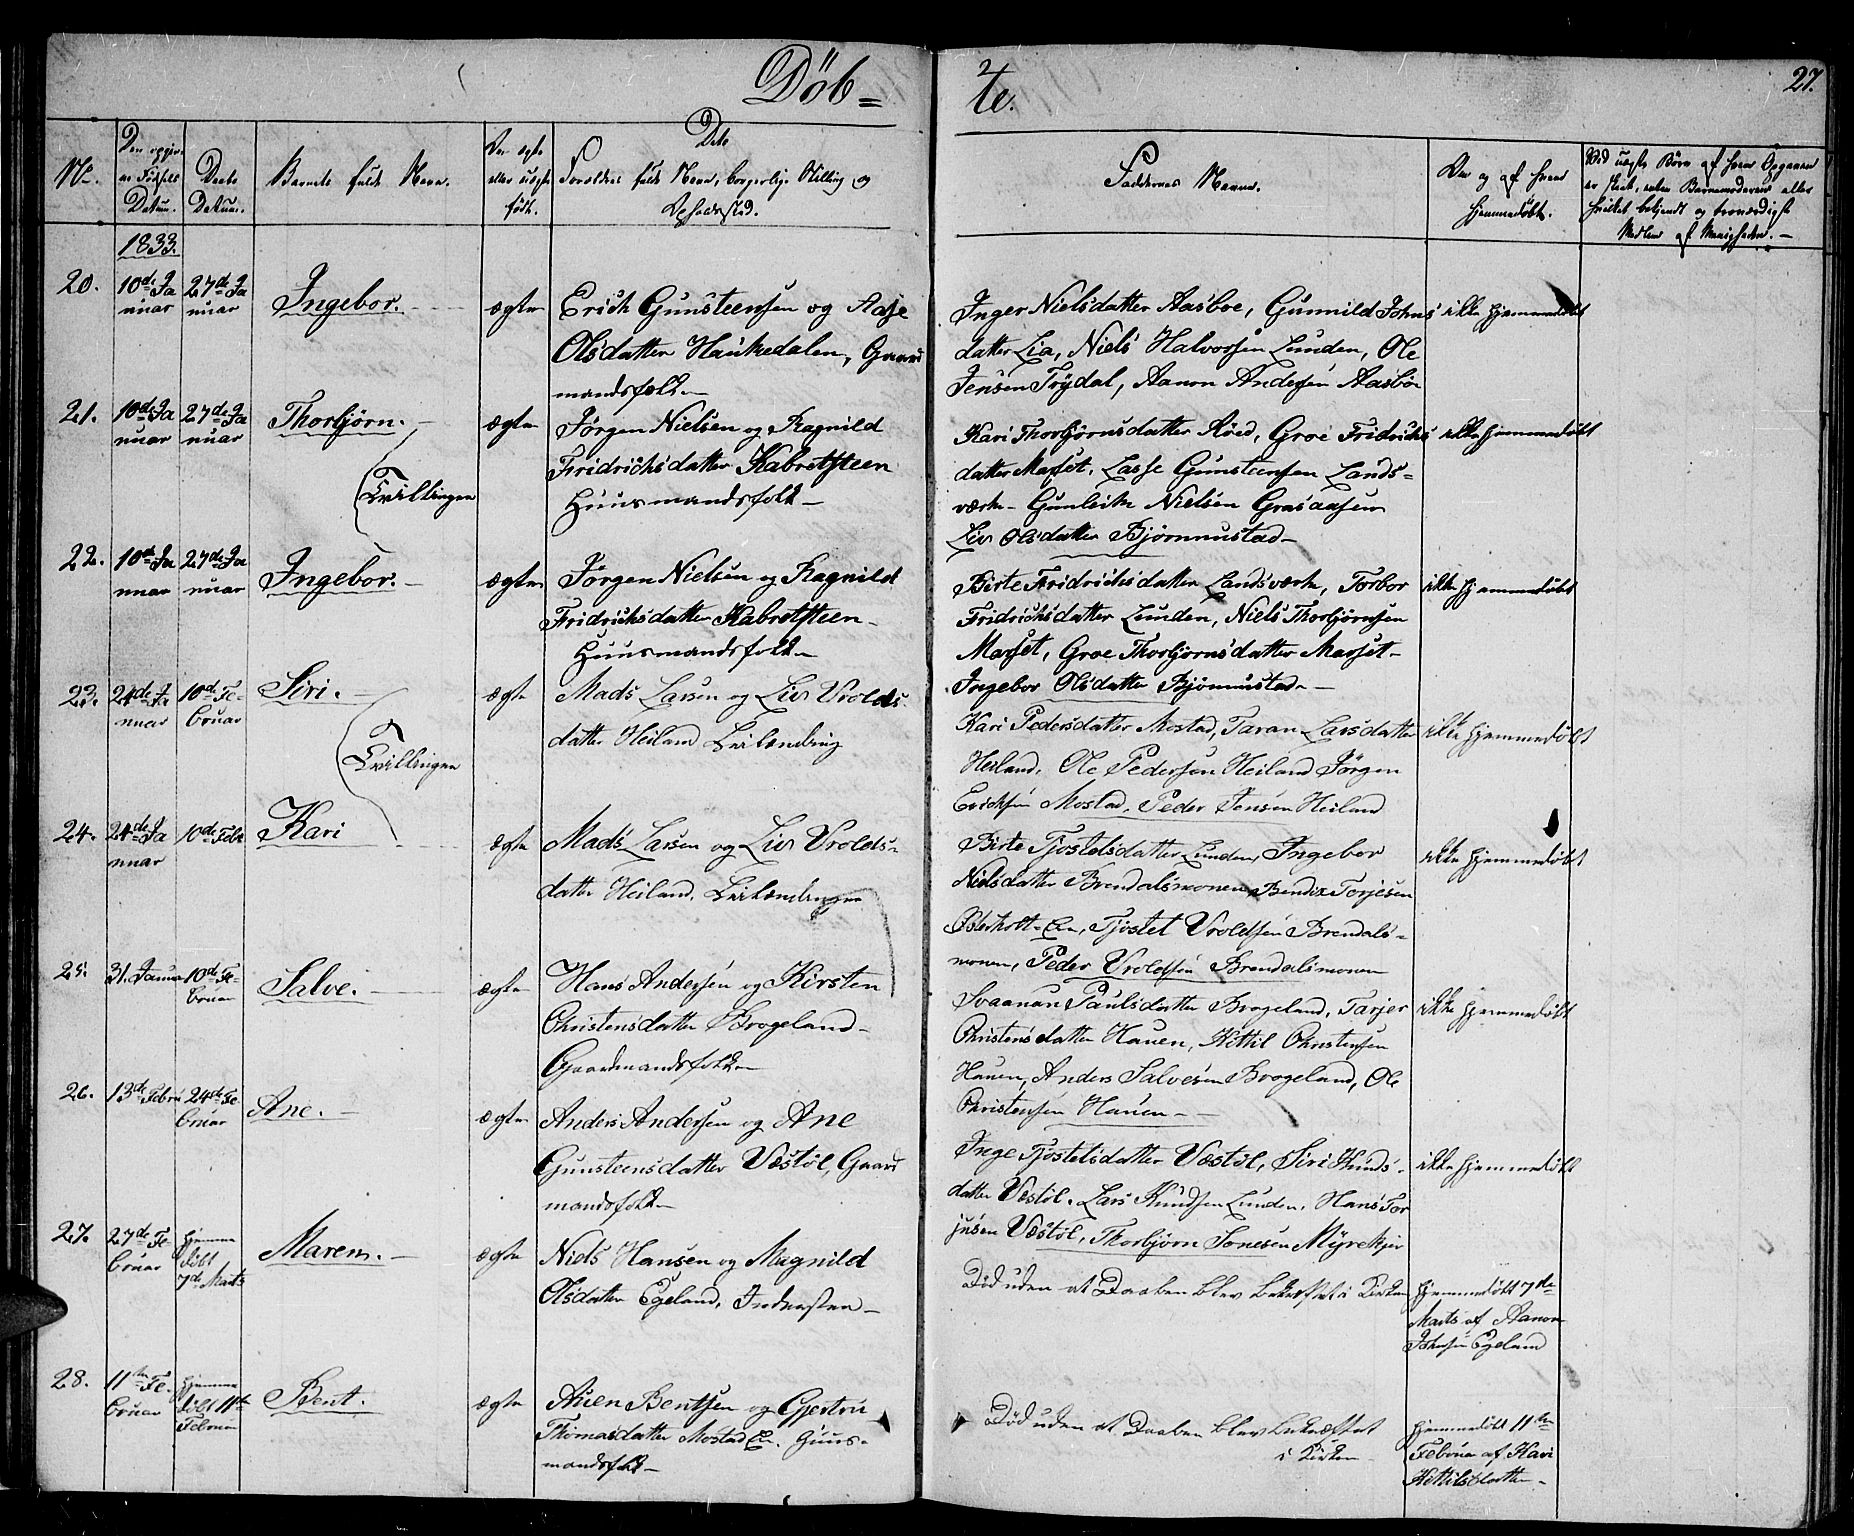 Döb=
te.
27.
No.
Den opgiv-
ne Fødsels
Datum.
Daabs
Datum.
Barnets fulde Navn.
Om ægte
eller uægte
født.
Dets
Forældres fulde Navn, borgerlige Stilling og
Opholdssted.
Faddernes Navne.
Om og af hvem
hjemmedøbt.
Ved uægte Børn af hvem Opgaven
er skeet, enten Barnemoderen eller
hvilket bekjendt og troværdigt
Medlem af Menigheden.-
1833.
20.
10de Ja
nuar
27de Ja
nuar
Ingebor.
ægte
Erich Gunsteensen og Aasje
Olsdatter Haukedalen, Gaard
mandsfolk-
Inger Nielsdatter Aasboe, Gunnild Johns
datter Lia, Niels Halvorsen Lunden, Ole
Jensen Trÿdal, Aanon Andersen Aasböe
ikke hjemmedøbt
21.
10de Ja
nuar
27de Ja
nuar
Thorbjørn.
ægte
Jørgen Nielsen og Ragnild
Fridrichsdatter Kabretsteen
Huusmandsfolk-
Kari Thorbjørnsdatter Röed, Groe Fridrichs
datter Masset, Lasse Gunsteensen Lands=
værk- Gunleik Nielsen Grasaasen
Liv Olsdatter Bjørnnustad-
ikke hjemmedøbt
Tvillinger
22.
10de Ja
nuar
27de Ja
nuar
Ingebor.
ægte
Jørgen Nielsen og Ragnild
Fridrichsdatter Kabretsteen-
Huusmandsfolk-
Birte Fridrichsdatter Landsværk, Torbor
Fridrichsdatter Lunden, Niels Thorbjørnsen
Masset, Groe Thorbjørnsdatter Masset-
Ingebor Olsdatter Bjönnustad-
ikke hjemmedøbt
23.
24de Ja
nuar
10de Fe-
bruar
Siri.
ægte
Mads Larsen og Liv Vrolds
datter Heiland
Kari Pedersdatter Mostad, Taran Larsdatter
Heiland, Ole Pedersen Heiland Jörgen
Erichsen Mostad, Peder Jensen Heiland
ikke hjemmedøbt
Tvillinger
24.
24de Ja
nuar
10de Febr
Kari
ægte
Mads Larsen og Liv Vrolds-
datter Heiland,
Birte Tjostelsdatter Lunden, Ingebor
Nielsdatter Brendalsmonen, Bendix Torjesen
Østerholt- Tjöstel Vroldsen Brendals-
monen, Peder Vroldsen Brendalsmonen
ikke hjemmedøbt
25.
31. Januar
10de Fe-
bruar
Salve.
ægte
Hans Andersen og Kirsten
Christensdatter Brogeland-
Gaardmandsfolk-
Svaanan Paulsdatter Brogeland, Tarjer
Christensdatter Hauen, Kittil Christensen
Hauen, Anders Salvesen Brogeland, Ole
Christensen Hauen-
ikke hjemmedøbt
26.
13de Febru
24de Fe
bruar
Ane.
ægte
Anders Andersen og Ane
Gunsteensdatter Vestöl, Gaard
mandsfolk-
Inge Tjostelsdatter Vestöl, Siri Knuds-
datter Vestöl. Lars Knudsen Lunden, Hans Tor
jusen Vestöl, Thorbjørn Jonesen Mÿrekjer
ikke hjemmedøbt
27.
27de Fe
bruar
hjemme
døbt
7de Marts
Maren.
ægte
Niels Hansen og Magnild
Olsdatter Egeland, Inderster-
Död uden at Daaben blev bekræftet i Kirken
hjemmedøbt 7de
Marts af Aanon
Johnsen Egeland
28.
11te Fe-
bruar
hjemme
døbt 11te
Februar
Bent.
ægte
Auen Bentsen og Gjertru
Thomasdatter Mostad Huus-
mandsfolk-
Död uden at Daaben blev bekræftet
i Kirken-
hjemmedøbt 11te
Februar af Kari
Kittilsdatter-